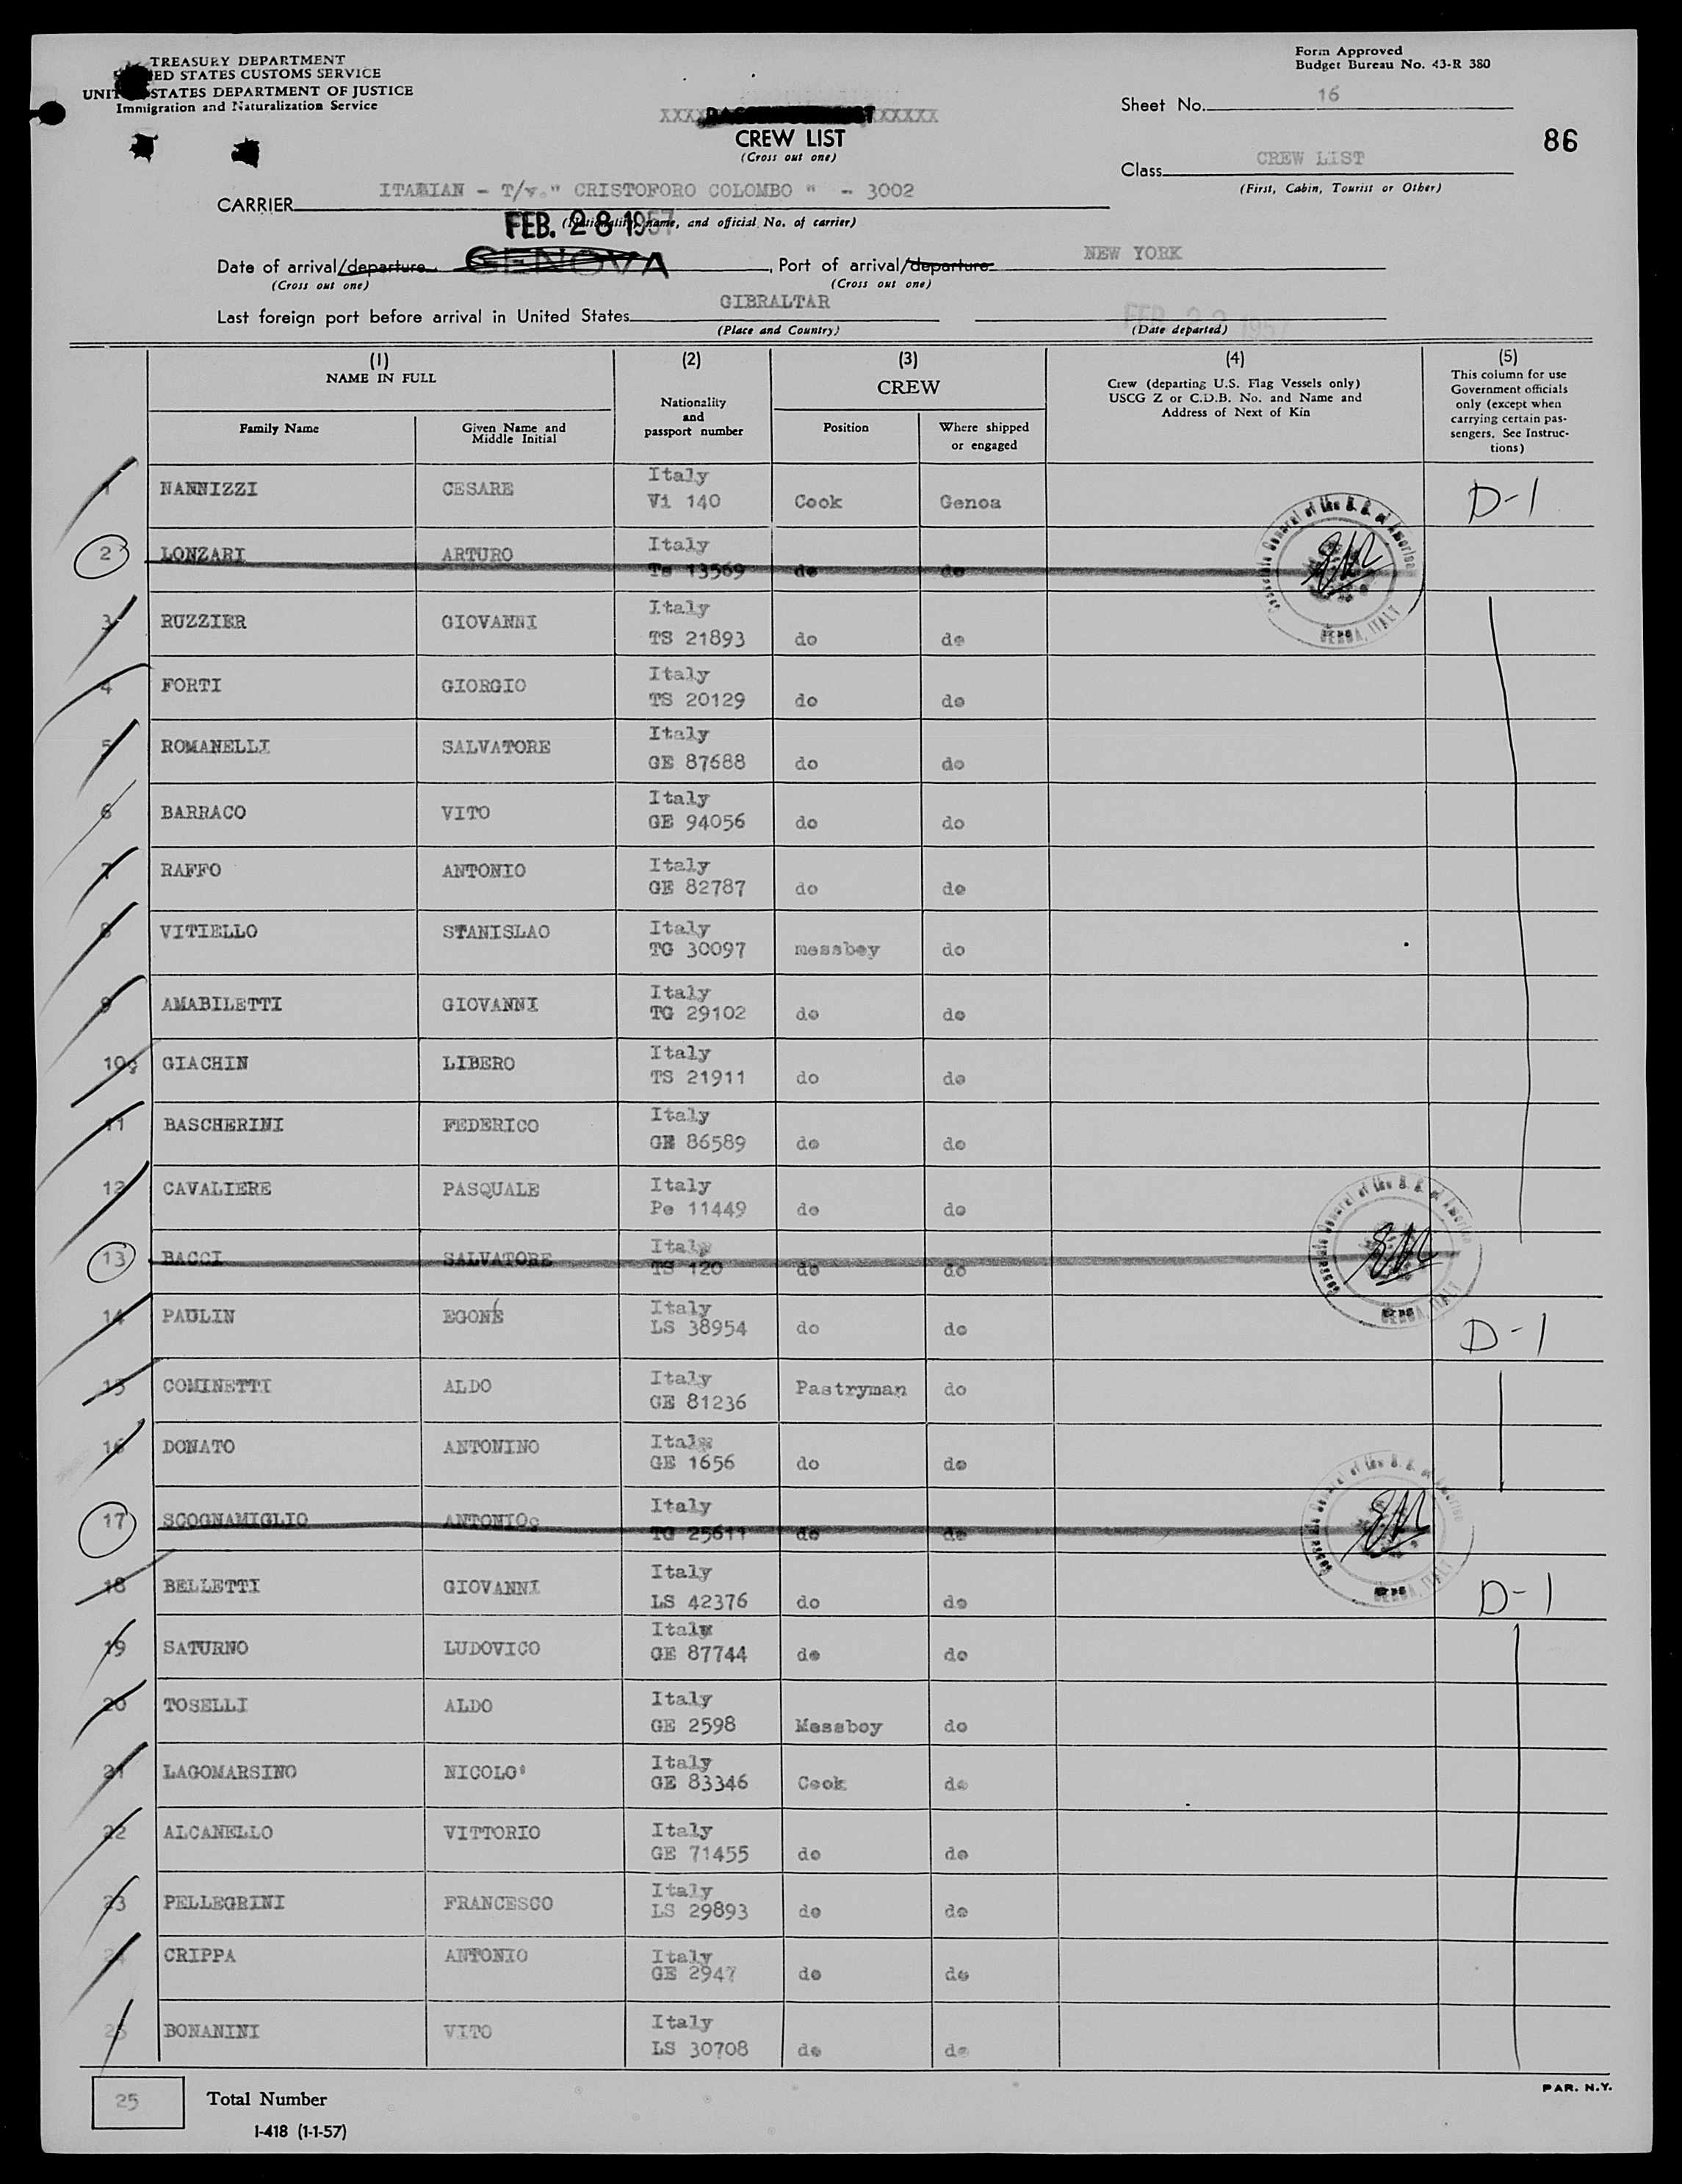 TREASURY DEPARTMENT
ED STATES CUSTOMS SERVICE
UNIT STATES DEPARTMENT OF JUSTICE
Immigration and Naturalization Service
Form Approved
Budget Bureau No. 43-R 380
Sheet No. 16
86
CREW LIST
(Cross out one)
Class CREW LIST
(First, Cabin, Tourist or Other)
CARRIER ITALIAN - T/v. " CRISTOFORO COLOMBO " - 3002
FEB. 28 1957
(Nationality, name, and official No. of carrier)
Date of arrival/departure GENOVA, Port of arrival/departure NEW YORK
(Cross out one) (Cross out one)
Last foreign port before arrival in United States GIBRALTAR FEB 22 1957
(Place and Country) (Date departed)
(1) (2) (3) (4) (5)
NAME IN FULL
Family Name
Given Name and Middle Initial
Nationality and passport number
CREW
Position
Where shipped or engaged
Crew (departing U.S. Flag Vessels only)
USCG Z or C.D.B. No. and Name and
Address of Next of Kin
This column for use
Government officials
only (except when
carrying certain pas-
sengers. See Instruc-
tions)
1 NANNIZZI CESARE Italy Vi 140 Cook Genoa D-1
2 LONZARI ARTURO Italy Ts 13569 do do
3 RUZZIER GIOVANNI Italy TS 21893 do do
4 FORTI GIORGIO Italy TS 20129 do do
5 ROMANELLI SALVATORE Italy GE 87688 do do
6 BARRACO VITO Italy GE 94056 do do
7 RAFFO ANTONIO Italy GE 82787 do do
8 VITIELLO STANISLAO Italy TG 30097 messboy do
9 AMABILETTI GIOVANNI Italy TG 29102 do do
10 GIACHIN LIBERO Italy TS 21911 do do
11 BASCHERINI FEDERICO Italy GE 86589 do do
12 CAVALIERE PASQUALE Italy Pe 11449 do do
13 BACCI SALVATORE Italy TS 120 do do
14 PAULIN EGONE Italy LS 38954 do do D-1
15 COMINETTI ALDO Italy GE 81236 Pastryman do
16 DONATO ANTONINO Italy GE 1656 do do
17 SCOGNAMIGLIO ANTONIO Italy TG 25611 do do
18 BELLETTI GIOVANNI Italy LS 42376 do do D-1
19 SATURNO LUDOVICO Italy GE 87744 do do
20 TOSELLI ALDO Italy GE 2598 Messboy do
21 LAGOMARSINO NICOLO' Italy GE 83346 Cook do
22 ALCANELLO VITTORIO Italy GE 71455 do do
23 PELLEGRINI FRANCESCO Italy LS 29893 do do
24 CRIPPA ANTONIO Italy GE 2947 do do
25 BONANINI VITO Italy LS 30708 do do
25 Total Number
I-418 (1-1-57)
PAR. N.Y.